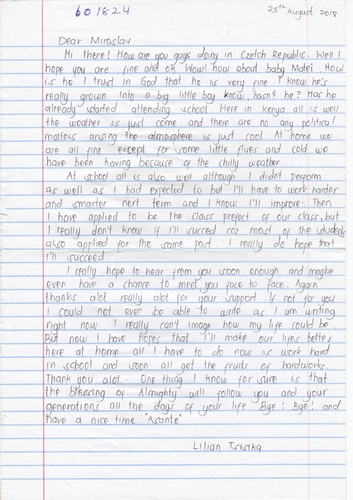 601824
25th August 2018
Dear Miroslav
Hi there! How are you guys doing in Czetch Republic. Well I
hope you are fine and ok. Wow! how about baby Matei. How
is he. I trust in God that he is very fine. I know he's
really grown into a big little boy know, hasn't he? Has he
already started attending school. Here in Kenya all is well
the weather is just come and there are no any political
matters arising the atmosphere is just cool. At home we
are all fine except for some little flues and cold we
have been having because of the chilly weather.
At school all is also well although I didnt perform
as well as I had expected to but I'll have to work harder
and smarter next term and I know I'll improve. Then
I have applied to be the class prefect of our class, but
I really don't know if I'll succeed coz most of the students
also applied for the same post. I really do hope that
I'll succeed
I really hope to hear from you soon enough and maybe
even have a chance to meet you face to face. Again
thanks alot really alot for your support. If not for you
I could not even be able to write as I am writing
right now. I really can't image how my life could be.
But now I have hopes that I'll make our lifes better
here at home all I have to do now is work hard
in school and soon all get the fruits of hardworks.
Thank you alot. One thing I know for sure is that
the blessing of Almighty will follow you and your
generations all the days of your life. Bye! Bye! and
have a nice time "Asante"
Lilian